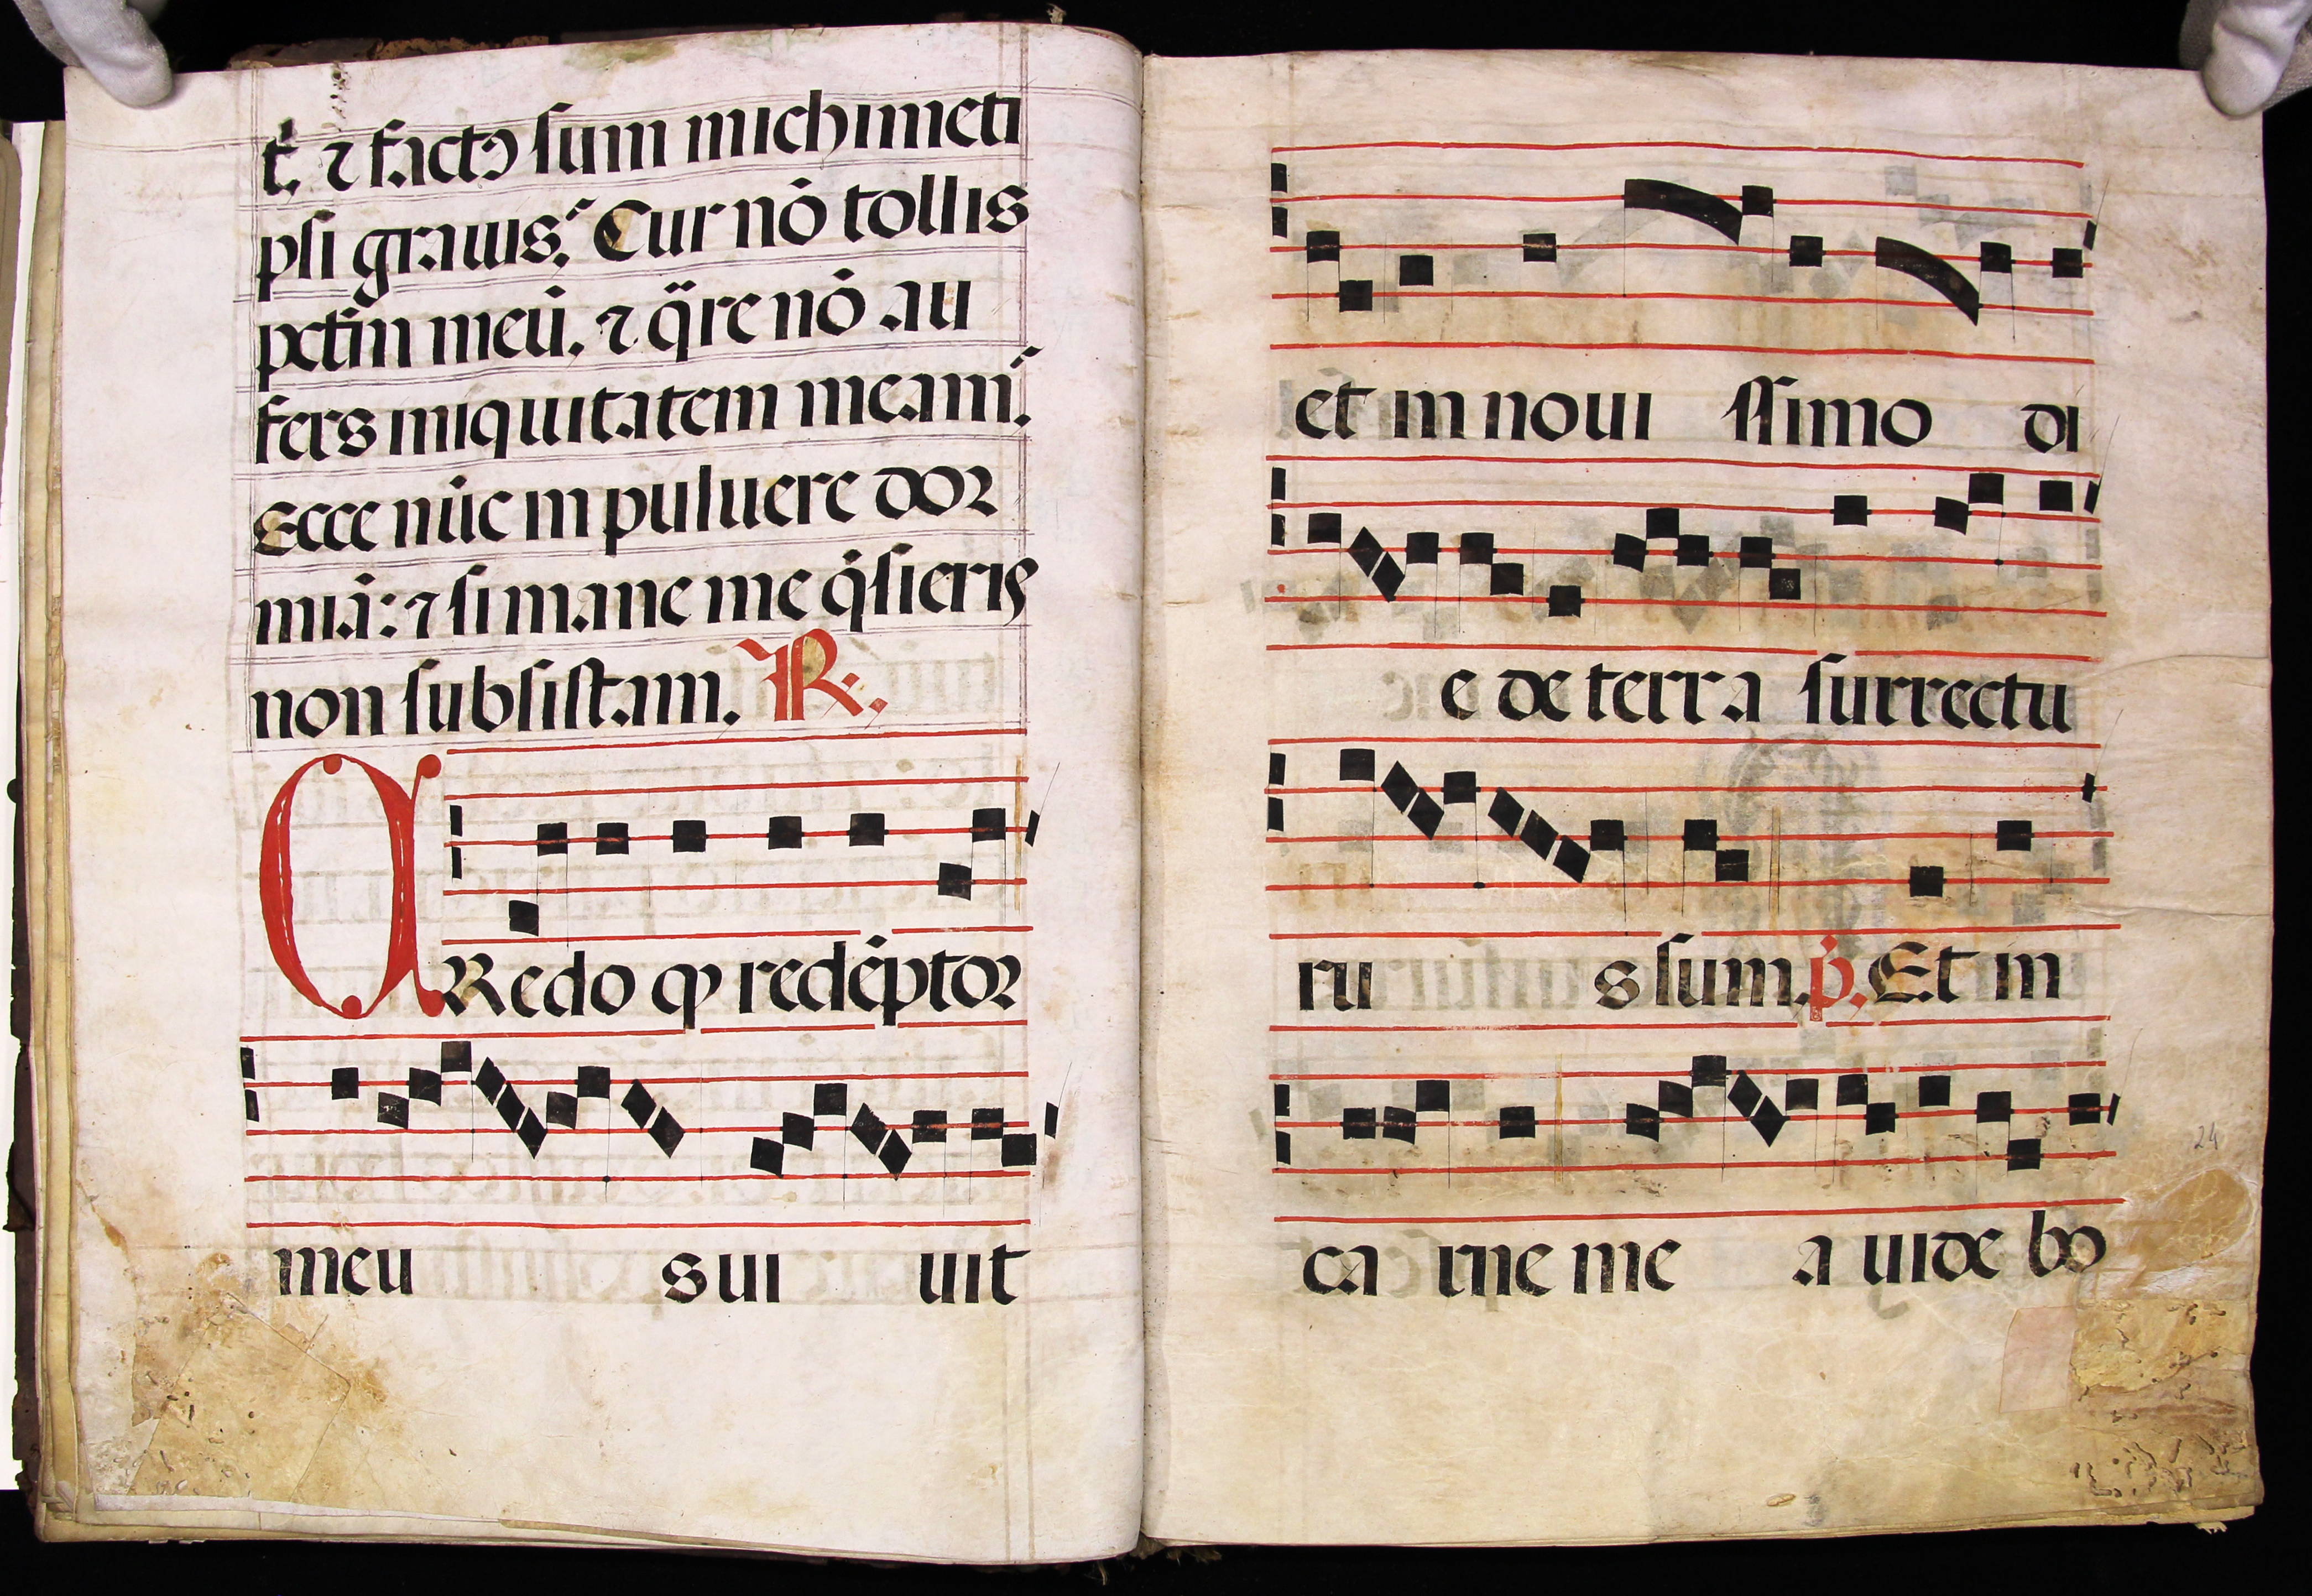 t̃. ⁊ factꝯ sum michimeti
psi grauis? Cur nō tollis
pctm̃ meū. ⁊ q̈re nō au
fers iniquitatem meam?
Ecce nūc in puluere dor
miā: ⁊ si mane me q̇sieris
non subsistam. R.
CRedo ꝙ redēptor
meu s ui uit
et in noui ssimo di
e de terra surrectu
ru s sum. p̊. Et in
ca rne me a uide bo
24